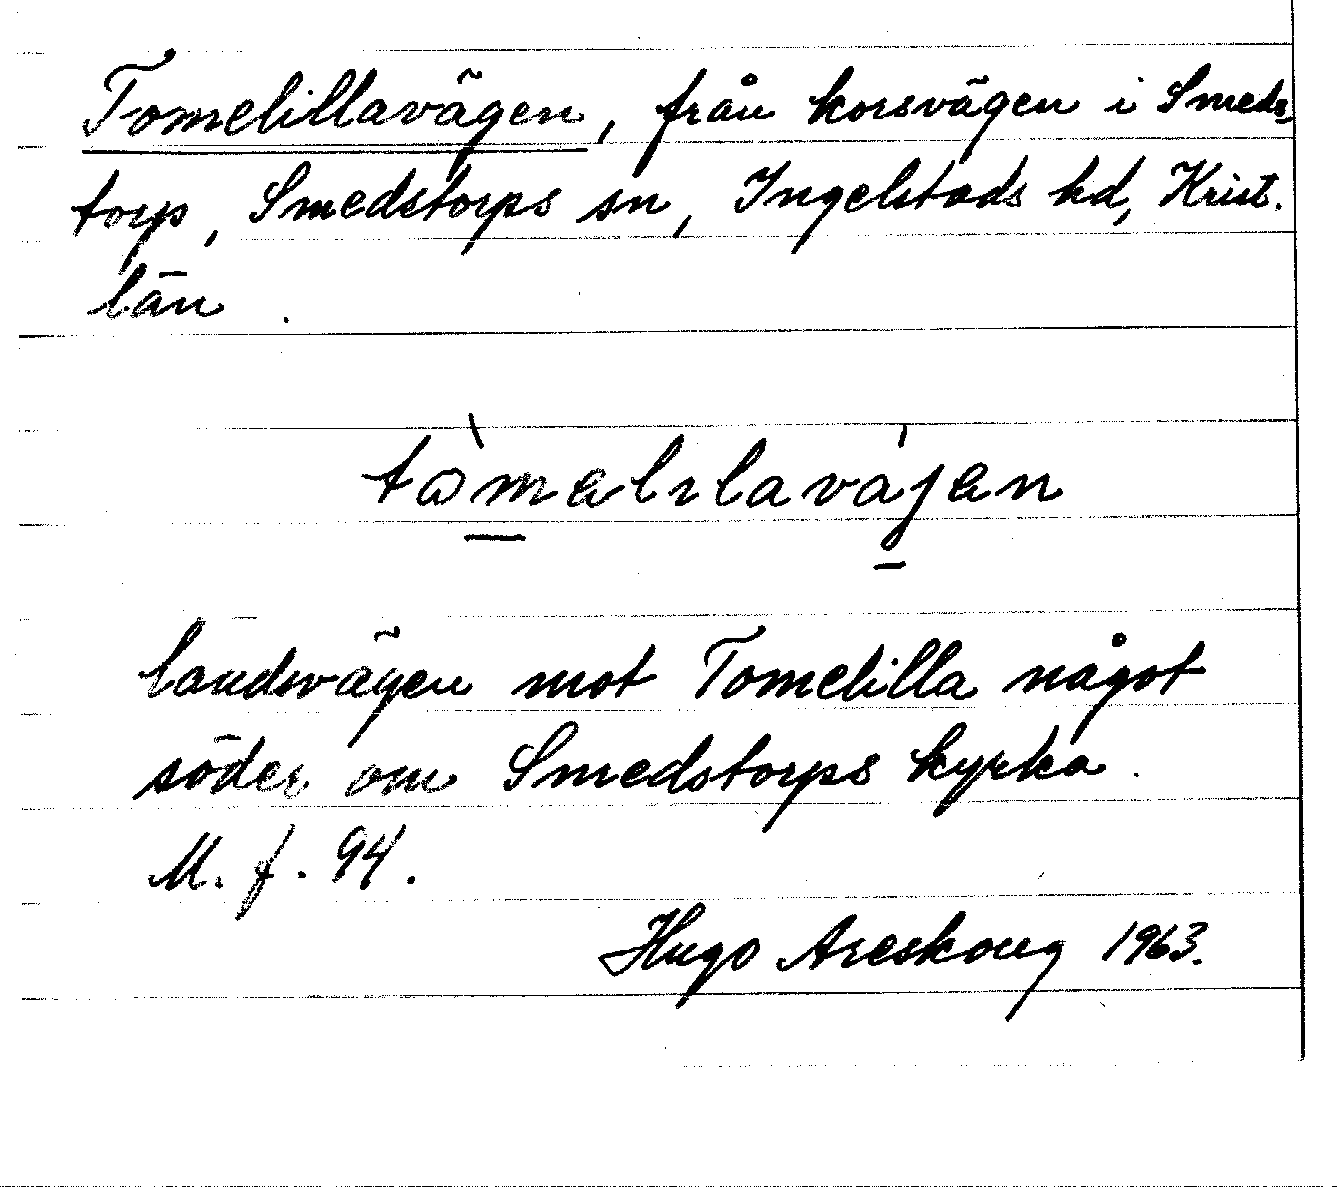 Tomelillavägen, från korsvägen i Smeds-
torp, Smedstorps sn, Ingelstads hd, Krist.
län.
landsvägen mot Tomelilla något
söder om Smedstorps kyrka.
M. f. 94.
Hugo Areskoug 1963.